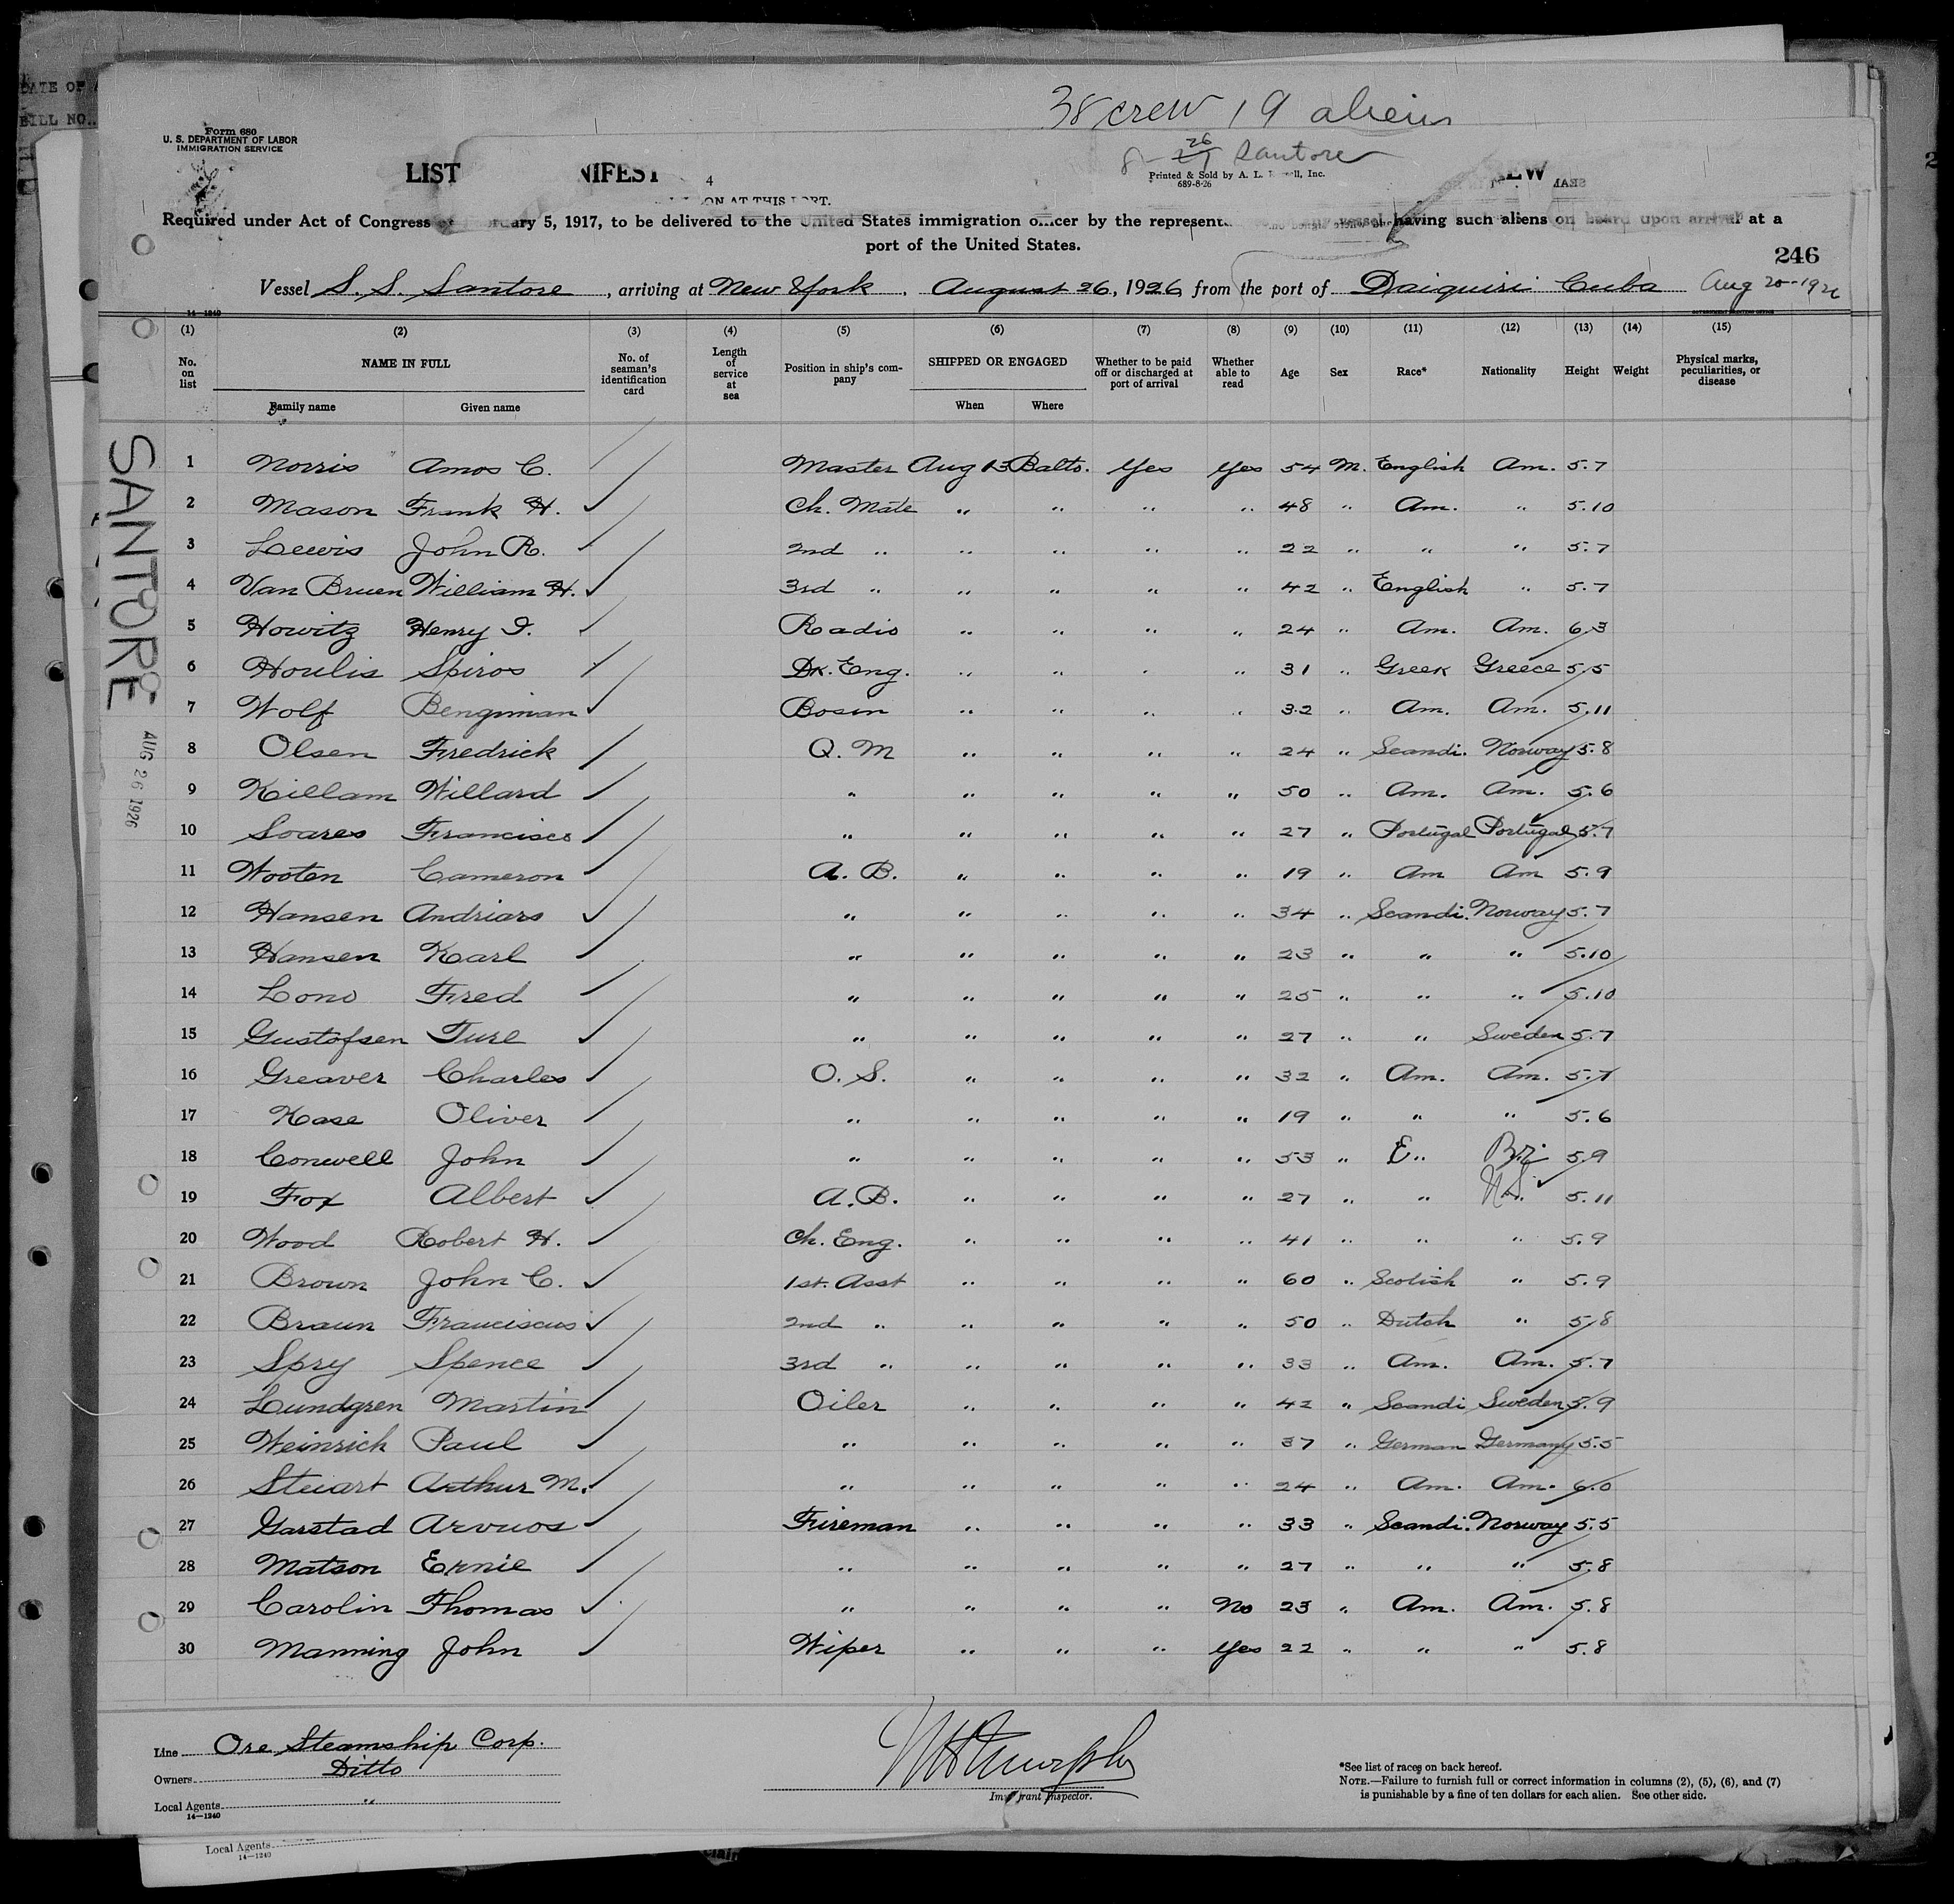 38 crew 19 aliens
8- 26 Santore
Form 680
U. S. DEPARTMENT OF LABOR
IMMIGRATION SERVICE
LIST NIFEST EW
4
Printed & Sold by A. L. Inc.
689-8-26
ON AT THIS PORT.
Required under Act of Congress 5, 1917, to be delivered to the United States immigration officer by the vessel having such aliens on board upon arrival at a
port of the United States.
246
Vessel S. S. Santore, arriving at New York, August 26, 1926, from the port of Daiquiri Cuba Aug 20-1926
14-1240
(1) (2) (3) (4) (5) (6) (7) (8) (9) (10) (11) (12) (13) (14) (15)
No. on list NAME IN FULL No. of seaman's identification card Length of service at sea Position in ship's company SHIPPED OR ENGAGED Whether to be paid off or discharged at port of arrival Whether able to read Age Sex Race* Nationality Height Weight Physical marks, peculiarities, or disease
Family name Given name When Where
1 Norris Amos C. Master Aug 13 Balto. Yes Yes 54 M. English Am. 5.7
2 Mason Frank H. Ch. Mate " " " " 48 " Am. " 5.10
3 Lewis John R. 2nd " " " " " 22 " " " 5.7
4 Van Bruen William H. 3rd " " " " " 42 " English " 5.7
5 Howitz Henry I. Radio " " " " 24 " Am. Am. 6.3
6 Houlis Spiros Dk. Eng. " " " " 31 " Greek Greece 5.5
7 Wolf Bengiman Bosin " " " " 32 " Am. Am. 5.11
8 Olsen Fredrick Q. M " " " " 24 " Scandi. Norway 5.8
9 Killam Willard " " " " " 50 " Am. Am. 5.6
10 Soares Francisco " " " " " 27 " Portugal Portugal 5.7
11 Wooten Cameron A. B. " " " " 19 " Am Am 5.9
12 Hansen Andriars " " " " " 34 " Scandi. Norway 5.7
13 Hansen Karl " " " " " 23 " " " 5.10
14 Lono Fred " " " " " 25 " " " 5.10
15 Gustofsen Ture " " " " " 27 " " Sweden 5.7
16 Greaver Charles O. S. " " " " 32 " Am. Am. 5.7
17 Kase Oliver " " " " " 19 " " " 5.6
18 Conwell John " " " " " 53 " E " Bri 5.9
19 Fox Albert A. B. " " " " 27 " " U.S. 5.11
20 Wood Robert H. Ch. Eng. " " " " 41 " " " 5.9
21 Brown John C. 1st. Asst " " " " 60 " Scotish " 5.9
22 Braun Franciscus 2nd " " " " " 50 " Dutch " 5.8
23 Spry Spence 3rd " " " " " 33 " Am. Am. 5.7
24 Lundgren Martin Oiler " " " " 42 " Scandi Sweden 5.9
25 Weinrich Paul " " " " " 37 " German Germany 5.5
26 Steuart Arthur M. " " " " " 24 " Am. Am. 6.0
27 Garstad Arvuos Fireman " " " " 33 " Scandi. Norway 5.5
28 Matson Ernie " " " " " 27 " " " 5.8
29 Carolin Thomas " " " " No 23 " Am. Am. 5.8
30 Manning John Wiper " " " Yes 22 " " " 5.8
SANTORE
AUG 26 1926
Line Ore Steamship Corp.
Owners Ditto
Local Agents "
14-1240
Immigrant Inspector.
*See list of races on back hereof.
NOTE.—Failure to furnish full or correct information in columns (2), (5), (6), and (7)
is punishable by a fine of ten dollars for each alien. See other side.
Local Agents
14-1240